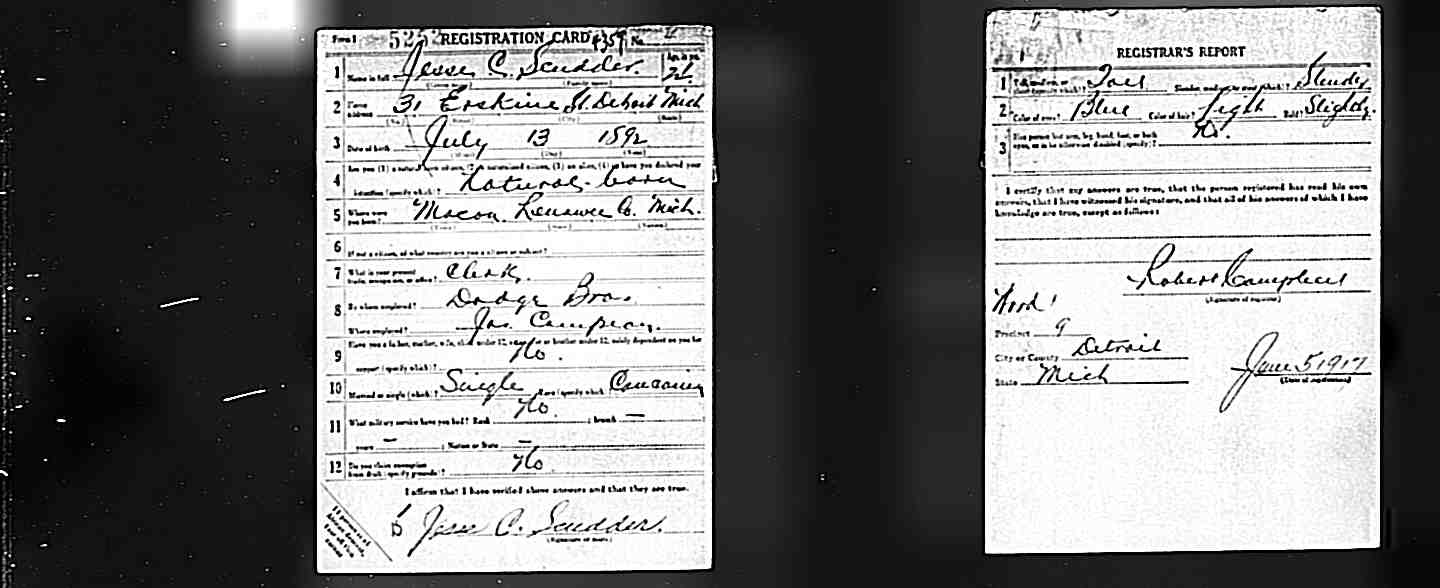 Form 1 5252 REGISTRATION CARD No.
1 Name in full Jesse C. Scudder. Age, in yrs.
(Given name) (Family name)
2 Home address 31 Erskine St. Detroit Mich
(No.) (Street) (City) (State)
3 Date of birth July 13 1892
(Month) (Day) (Year)
4 Are you (1) a natural-born citizen, (2) a naturalized citizen, (3) an alien, (4) or have you declared your
intention (specify which)? Natural-born
5 Where were you born? Macon Lenawee Co. Mich.
(Town) (State) (Nation)
6 If not a citizen, of what country are you a citizen or subject?
7 What is your present trade, occupation, or office? Clerk.
8 By whom employed? Dodge Bros.
Where employed? Jos. Campeau.
9 Have you a father, mother, wife, child under 12, or a sister or brother under 12, solely dependent on you for
support (specify which)? No.
10 Married or single (which)? Single Race (specify which)? Caucasian
11 What military service have you had? Rank No. ; branch —
years — ; Nation or State —
12 Do you claim exemption from draft (specify grounds)? No
I affirm that I have verified above answers and that they are true.
Jesse C. Scudder.
(Signature or mark)
REGISTRAR'S REPORT
1 Tall, medium, or short (specify which)? Tall Slender, medium, or stout (which)? Slender
2 Color of eyes? Blue Color of hair? Light Bald? Slightly.
3 Has person lost arm, leg, hand, foot, or both
eyes, or is he otherwise disabled (specify)? No.
I certify that my answers are true, that the person registered has read his own
answers, that I have witnessed his signature, and that all of his answers of which I have
knowledge are true, except as follows:
Robert Campbell
(Signature of registrar)
Ward 1
Precinct 9
City or County Detroit
State Mich
June 5 1917
(Date of registration)